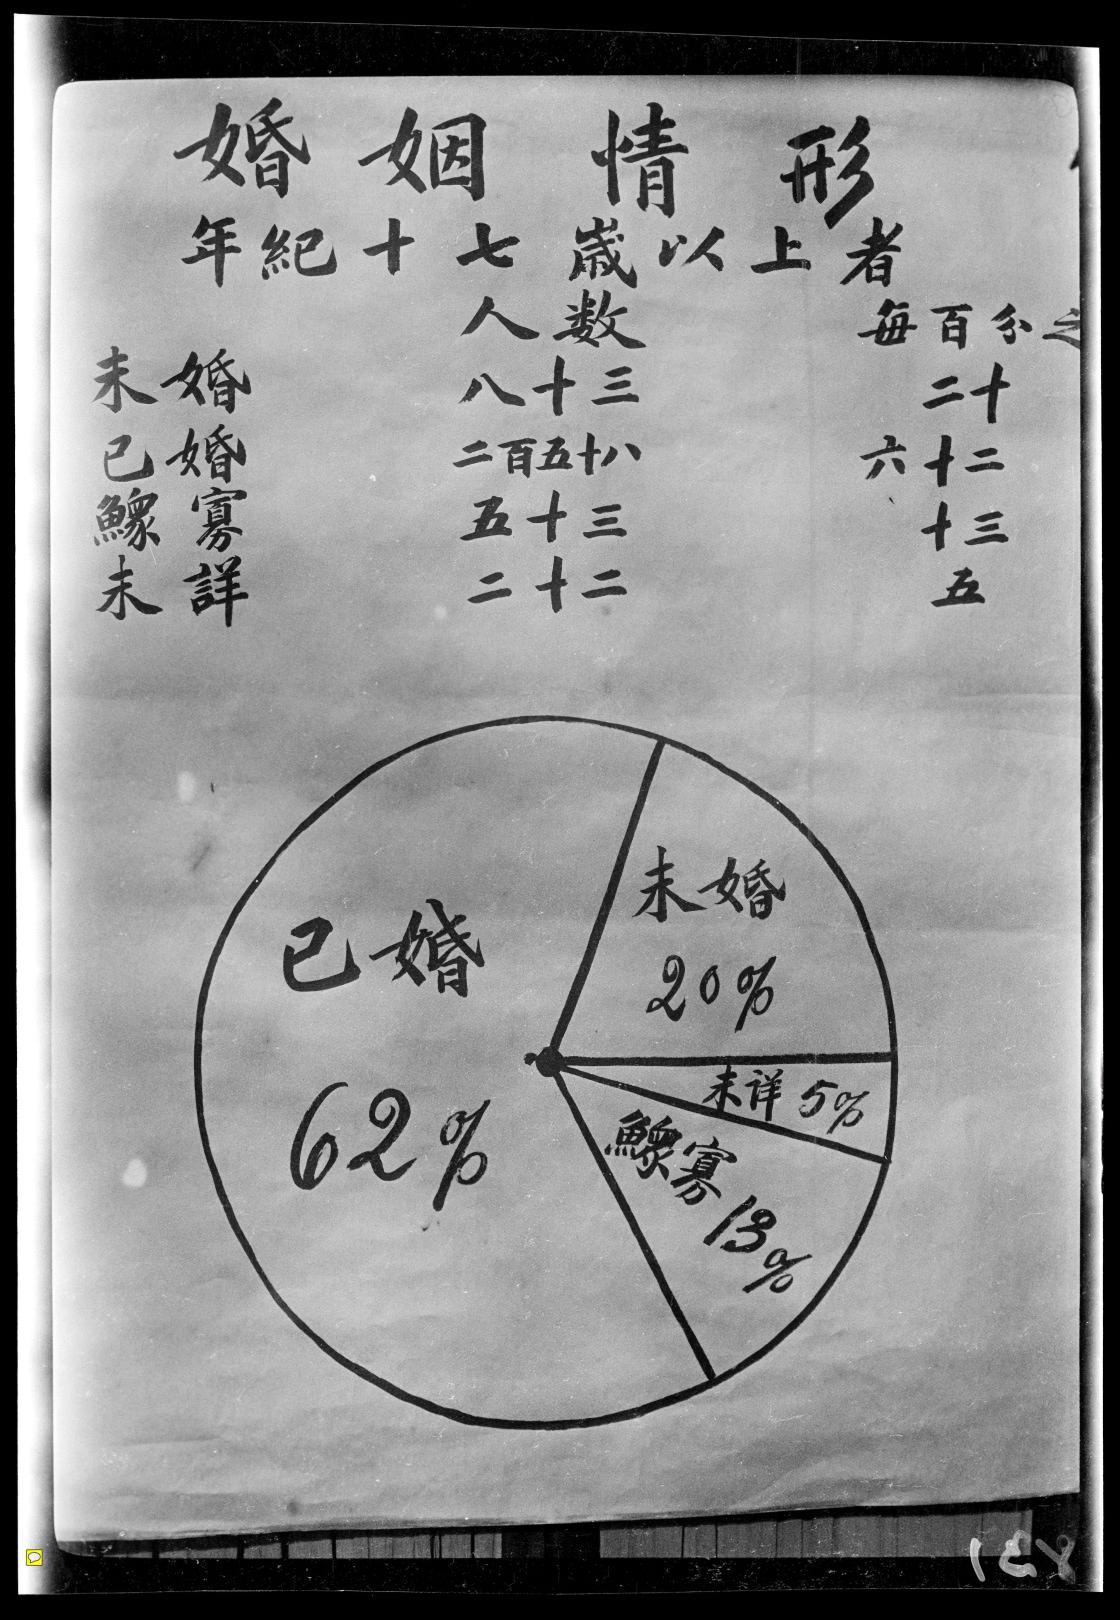 婚姻情形
年紀十七歲以上者
人数 每百分之
未婚 八十三 二十
已婚 二百五十八 六十二
鰥寡 五十三 十三
未詳 二十二 五
未婚
20%
已婚
62%
未詳 5%
鰥寡 13%